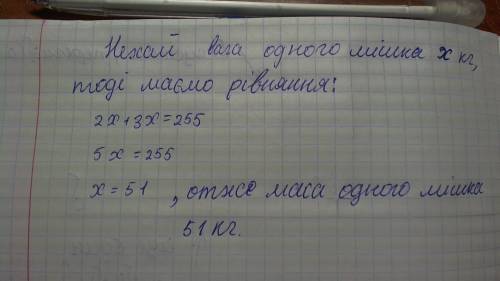 Нехай вага одного мішка x кг,
тоді маємо рівняння:
2x+3x=255
5x=255
x=51, отже маса одного мішка
51 кг.